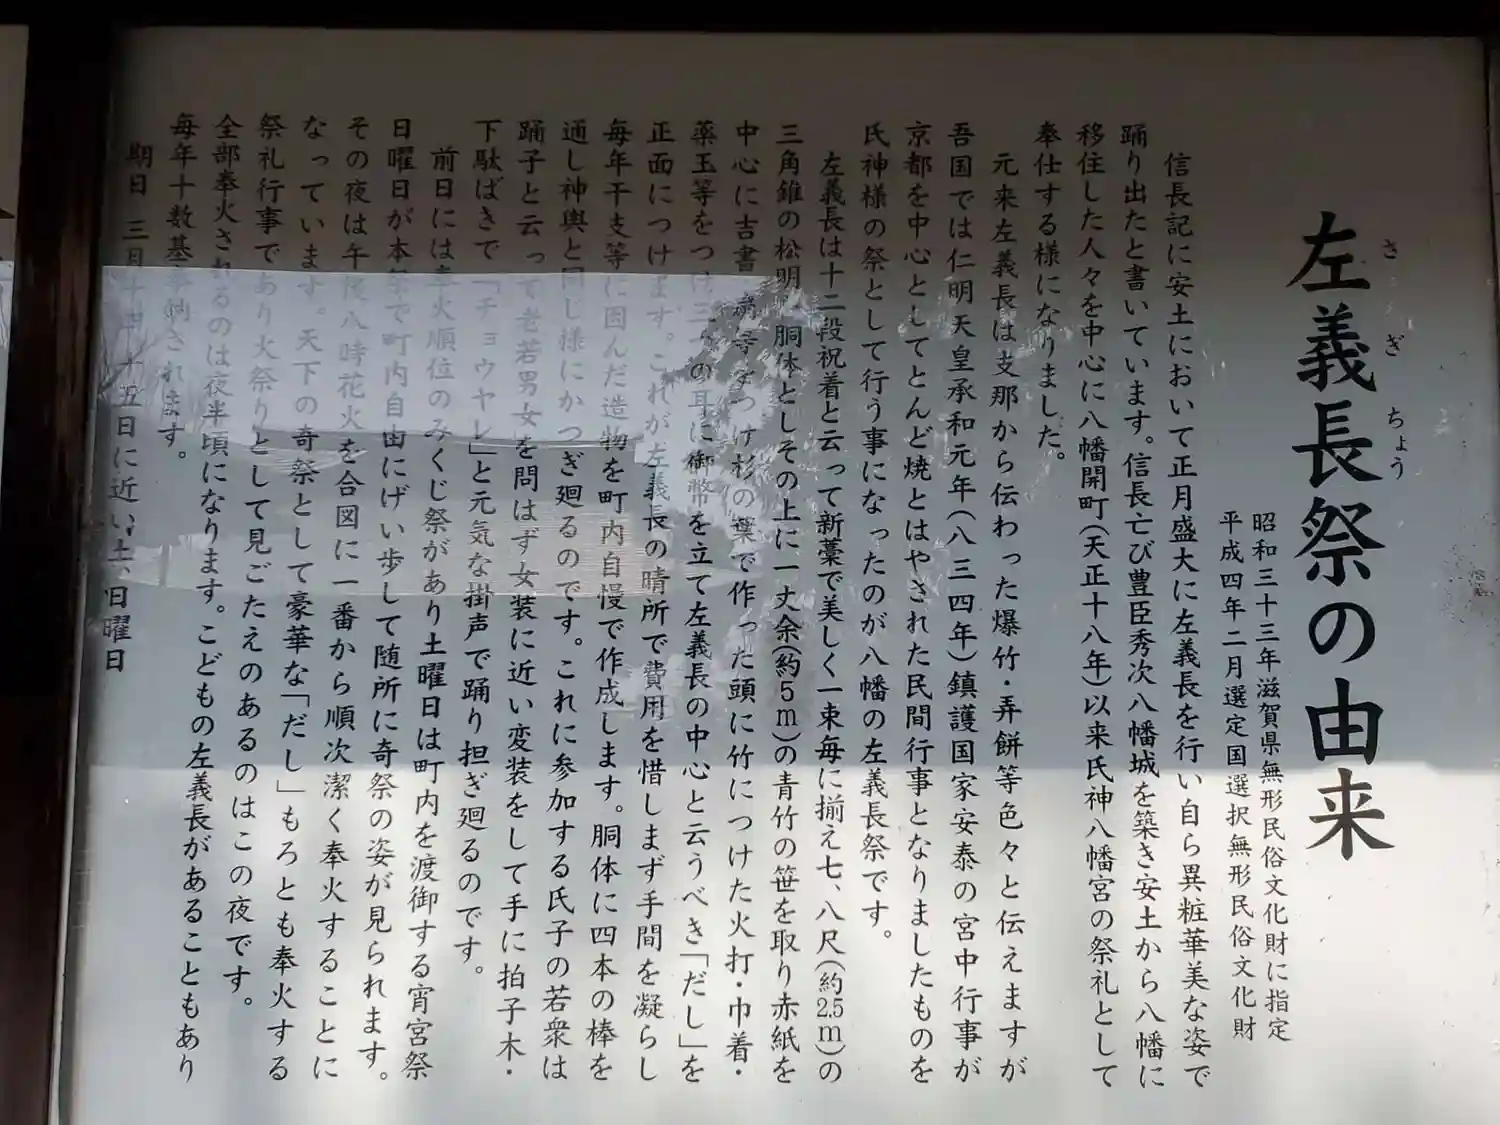 左義長祭の由来
さぎちょう
昭和三十三年滋賀県無形民俗文化財に指定
平成四年二月選定国選択無形民俗文化財
信長記に安土において正月盛大に左義長を行い自ら異粧華美な姿で
踊り出たと書いています。信長亡び豊臣秀次八幡城を築き安土から八幡に
移住した人々を中心に八幡開町(天正十八年)以来氏神八幡宮の祭礼として
奉仕する様になりました。
元来左義長は支那から伝わった爆竹・弄餅等色々と伝えますが
吾国では仁明天皇承和元年(八三四年)鎮護国家安泰の宮中行事が
京都を中心としてとんど焼とはやされた民間行事となりましたものを
氏神様の祭として行う事になったのが八幡の左義長祭です。
左義長は十二段祝着と云って新藁で美しく一束毎に揃え七、八尺(約2.5m)の
三角錐の松明、胴体としその上に一丈余(約5m)の青竹の笹を取り赤紙を
中心に吉書 づつけ杉の葉で作った頭に竹につけた火打・巾着・
薬玉等をつけ三 の耳に御幣を立て左義長の中心と云うべき「だし」を
正面につけます。これが左義長の晴所で費用を惜しまず手間を凝らし
毎年干支等に因んだ造物を町内自慢で作成します。胴体に四本の棒を
通し神輿と同じ様にかつぎ廻るのです。これに参加する氏子の若衆は
踊子と云って老若男女を問はず女装に近い変装をして手に拍子木・
下駄ばきで「チョウヤレ」と元気な掛声で踊り担ぎ廻るのです。
前日には奉火順位のみくじ祭があり土曜日は町内を渡御する宵宮祭
日曜日が本祭で町内自由にげい歩して随所に奇祭の姿が見られます。
その夜は午後八時花火を合図に一番から順次潔く奉火することに
なっています。天下の奇祭として豪華な「だし」もろとも奉火する
祭礼行事であり火祭りとして見ごたえのあるのはこの夜です。
全部奉火されるのは夜半頃になります。こどもの左義長があることもあり
毎年十数基奉納されます。
期日 三月十四、十五日に近い土、日曜日